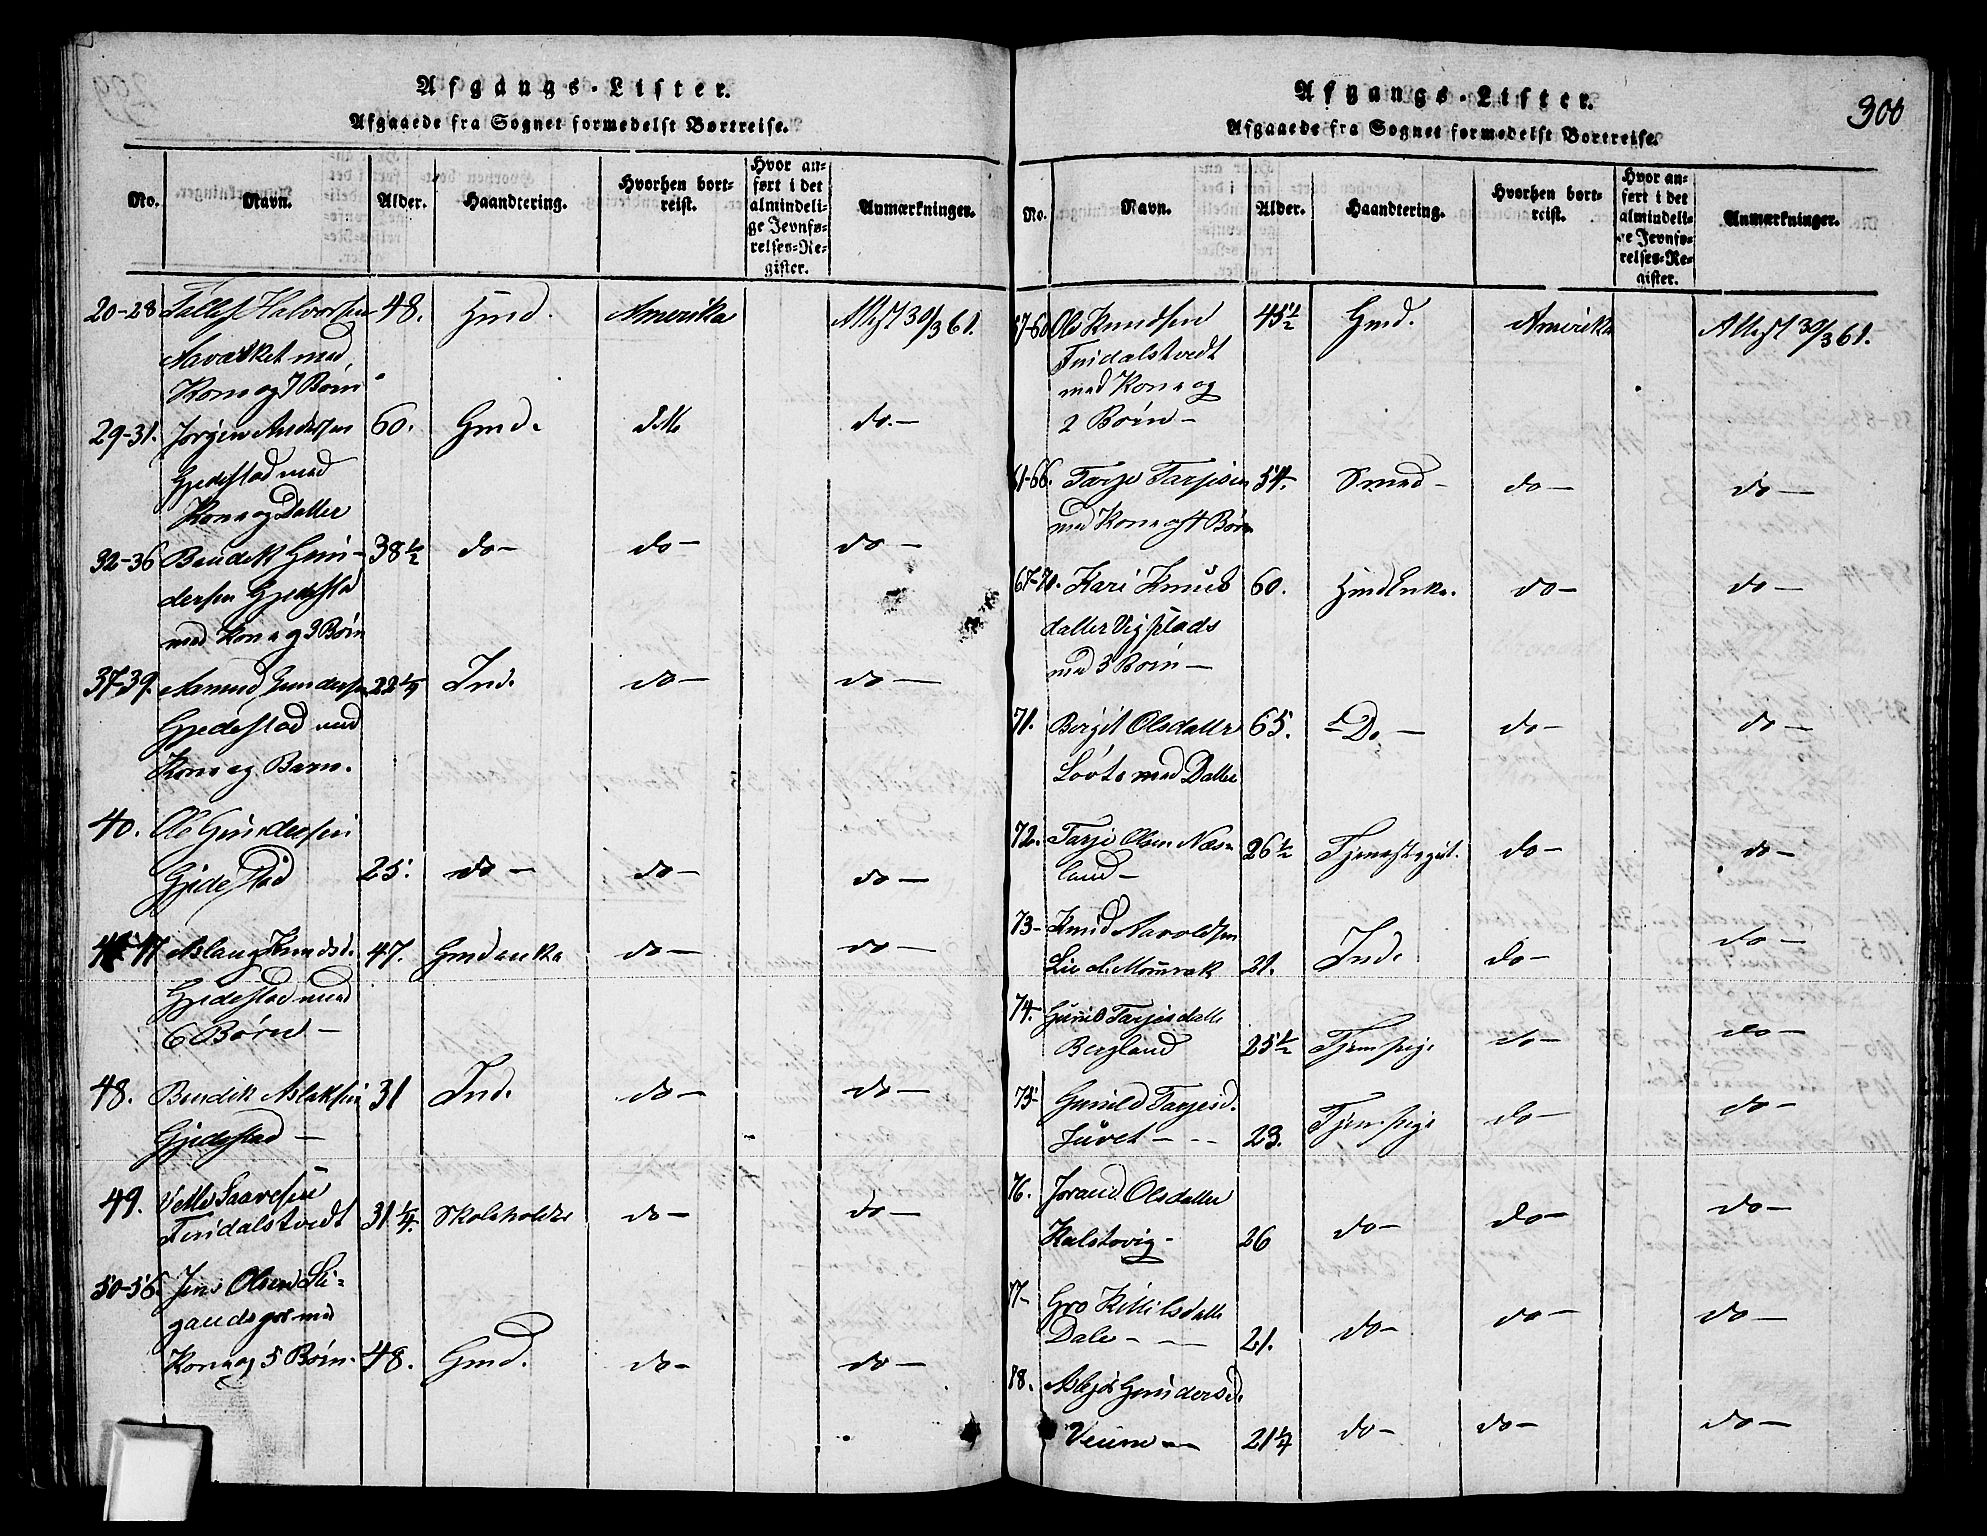 Afgangs-Lister.
Afgaaede fra Sognet formedelst Bortreise.
No. Navn. Alder. Haandtering. Hvorhen bortreist. Hvor anført i det almindelige Jevnførelses-Register. Anmærkninger.
20-28 Tallef Halvorsen 48. Gmd. Amerika Attest 30/3 61.
Navarsket med
Kone og 7 Børn
29-31. Jørgen Andersen 60. Gmd. do do-
Gjedestad med
Kone og Datter
32-36 Bendik Gun- 38 1/2 do- do- do-
dersen Gjedesta
med Kone og 3 Børn
37-39. Aamund Gundersen 22 1/4 Ind. do- do-
Gjedestad med
Kone og Barn.
40. Ole Gundersen
Gjedestad 25. do- do- do-
41-47 Aslaug Knudsd. 47. Gmdenke do- do-
Gjedestad med
6 Børn -
48. Bendik Aslaksen 31 Ind. do- do-
Gjedestad -
49. Vetle Saavesen
Findalstvedt 31 1/4. Skoleholder do- do-
50-56. Jens Olsen
med
Kone og 5 Børn. 48. Gmd. do- do-
Afgangs-Lister.
300
Afgaaede fra Sognet formedelst Bortreise.
No. Navn. Alder. Haandtering. Hvorhen bortreist. Hvor anført i det almindelige Jevnførelses-Register. Anmærkninger.
57-60 Ole Knudsen 45 1/2 Gmd. Amerika Attest 30/3 61.
Findalstvedt
med Kone og
2 Børn -
61-66. Tarje Tarjesen 54. Smed - do- do-
med Kone og 4 Børn
67-70. Kari Knuds 60. Gmd Enke. do- do-
datter Vigstads
med 3 Børn -
71. Bergit Olsdatter 65. Do - do- do-
med Datter
72. Tarje Olsen Næs- 26 1/2 Tjenestegut. do- do-
land-
73- Knud Navoldsen do-
Momrak 21. Ind. do-
74. Gunild Tarjesdatter do-
Bergland 25 1/2 Tjenspige do-
75 Gunild Tarjesd. do- do-
Juvet - - - 23. Tjenspige
76. Jorand Olsdatter do-
Kalstovig- 26 do- do-
77- Gro Kittilsdatter do- do-
Dale - - 21. do-
78. Asbjør Gundersd.
Veum - 21 1/4 do- do- do-